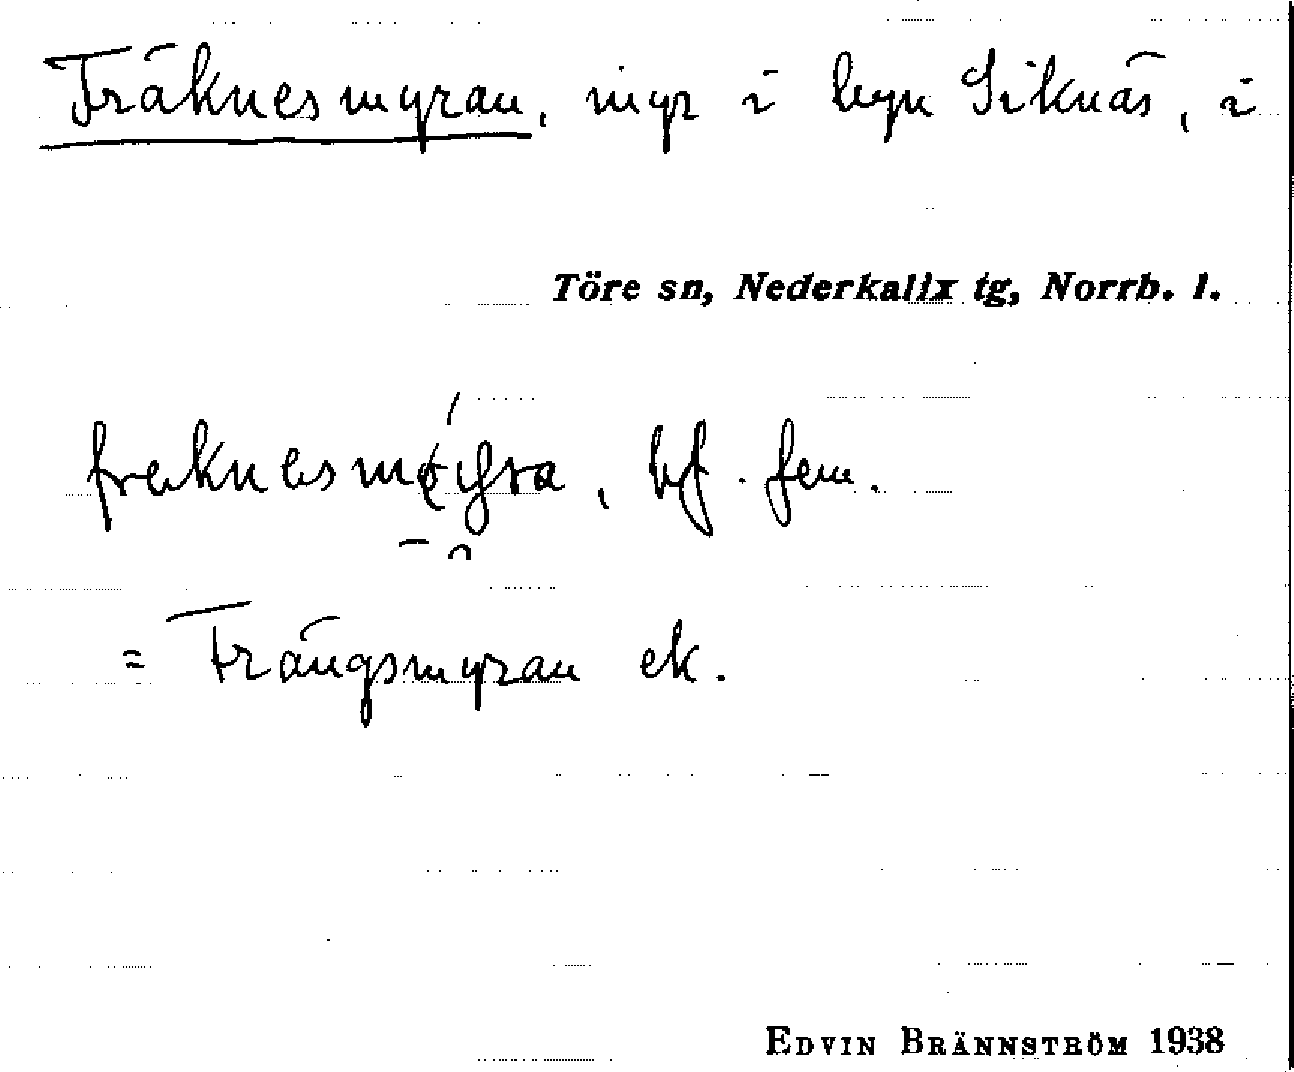 Fräknesmyran, myr i byn Siknäs, i
Töre sn, Nederkalix tg, Norrb. l.
bf. fem.
= Trängsmyran ek.
EDVIN BRÄNNSTRÖM 1938